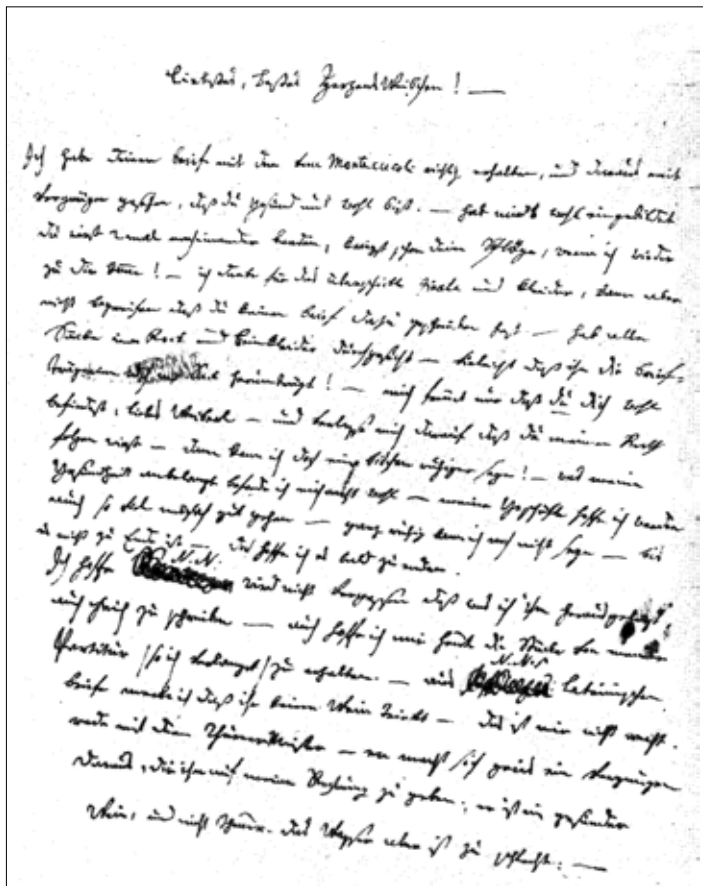 Liebstes, bestes Herzens Weibchen! —
Ich habe deinen brief mit dem von Montecucoli richtig erhalten, und daraus mit
vergnügen gesehen, daß du gesund und wohl bist. — hab mirs wohl eingebildet
du wirst 2mal nacheinander baaden, kriegst schon deine Schläge, wenn ich wieder
zu dir komme! — ich danke für das überschickte Finale und kleider, kann aber
nicht begreifen daß du keinen brief dazu geschrieben hast — hab alle
Säcke im Rock und beinkleider durchgesucht — vieleicht daß ihn die brief=
trägerinn noch im Sack herumträgt! — mich freuet nur daß du dich wohl
befindest, liebes Weiberl — und verlasse mich darauf daß du meinem Rath
folgen wirst — dann kann ich doch ein bischen ruhiger seyn! — was meine
Gesundheit anbelangt befinde ich mich recht wohl — meine Geschäfte hoffe ich werden
auch so viel möglich gut gehen — ganz ruhig kann ich noch nicht seyn — bis
es nicht zu Ende ist — doch hoffe ich es bald zu enden.
Ich hoffe N.N. wird nicht vergessen das was ich ihm herausgelegt,
auch gleich zu schreiben — auch hoffe ich mir heute die Stücke von meiner
Partitur /so ich verlangt/ zu erhalten. — aus N.N.s lateinischen
briefe merke ich daß ihr keinen Wein trinkt — das ist mir nicht recht.
rede mit dem Thürnermeister — er macht sich gewis ein vergnügen
daraus, dir ihn auf meine Rechnung zu geben; er ist ein gesunder
Wein, und nicht theuer. das Wasser aber ist zu schlecht. —